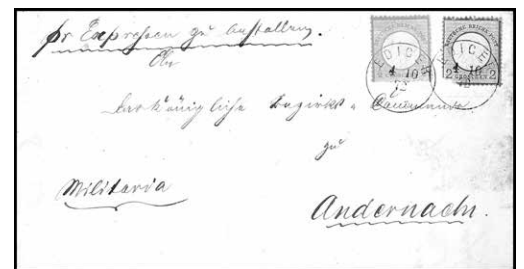 pr Expressen zu bestellen.
An
das Königliche Bezirks = Commando
zu
Militaria
Andernach.
4 10
4 10
DEUTSCHE REICHS-POST
2 2